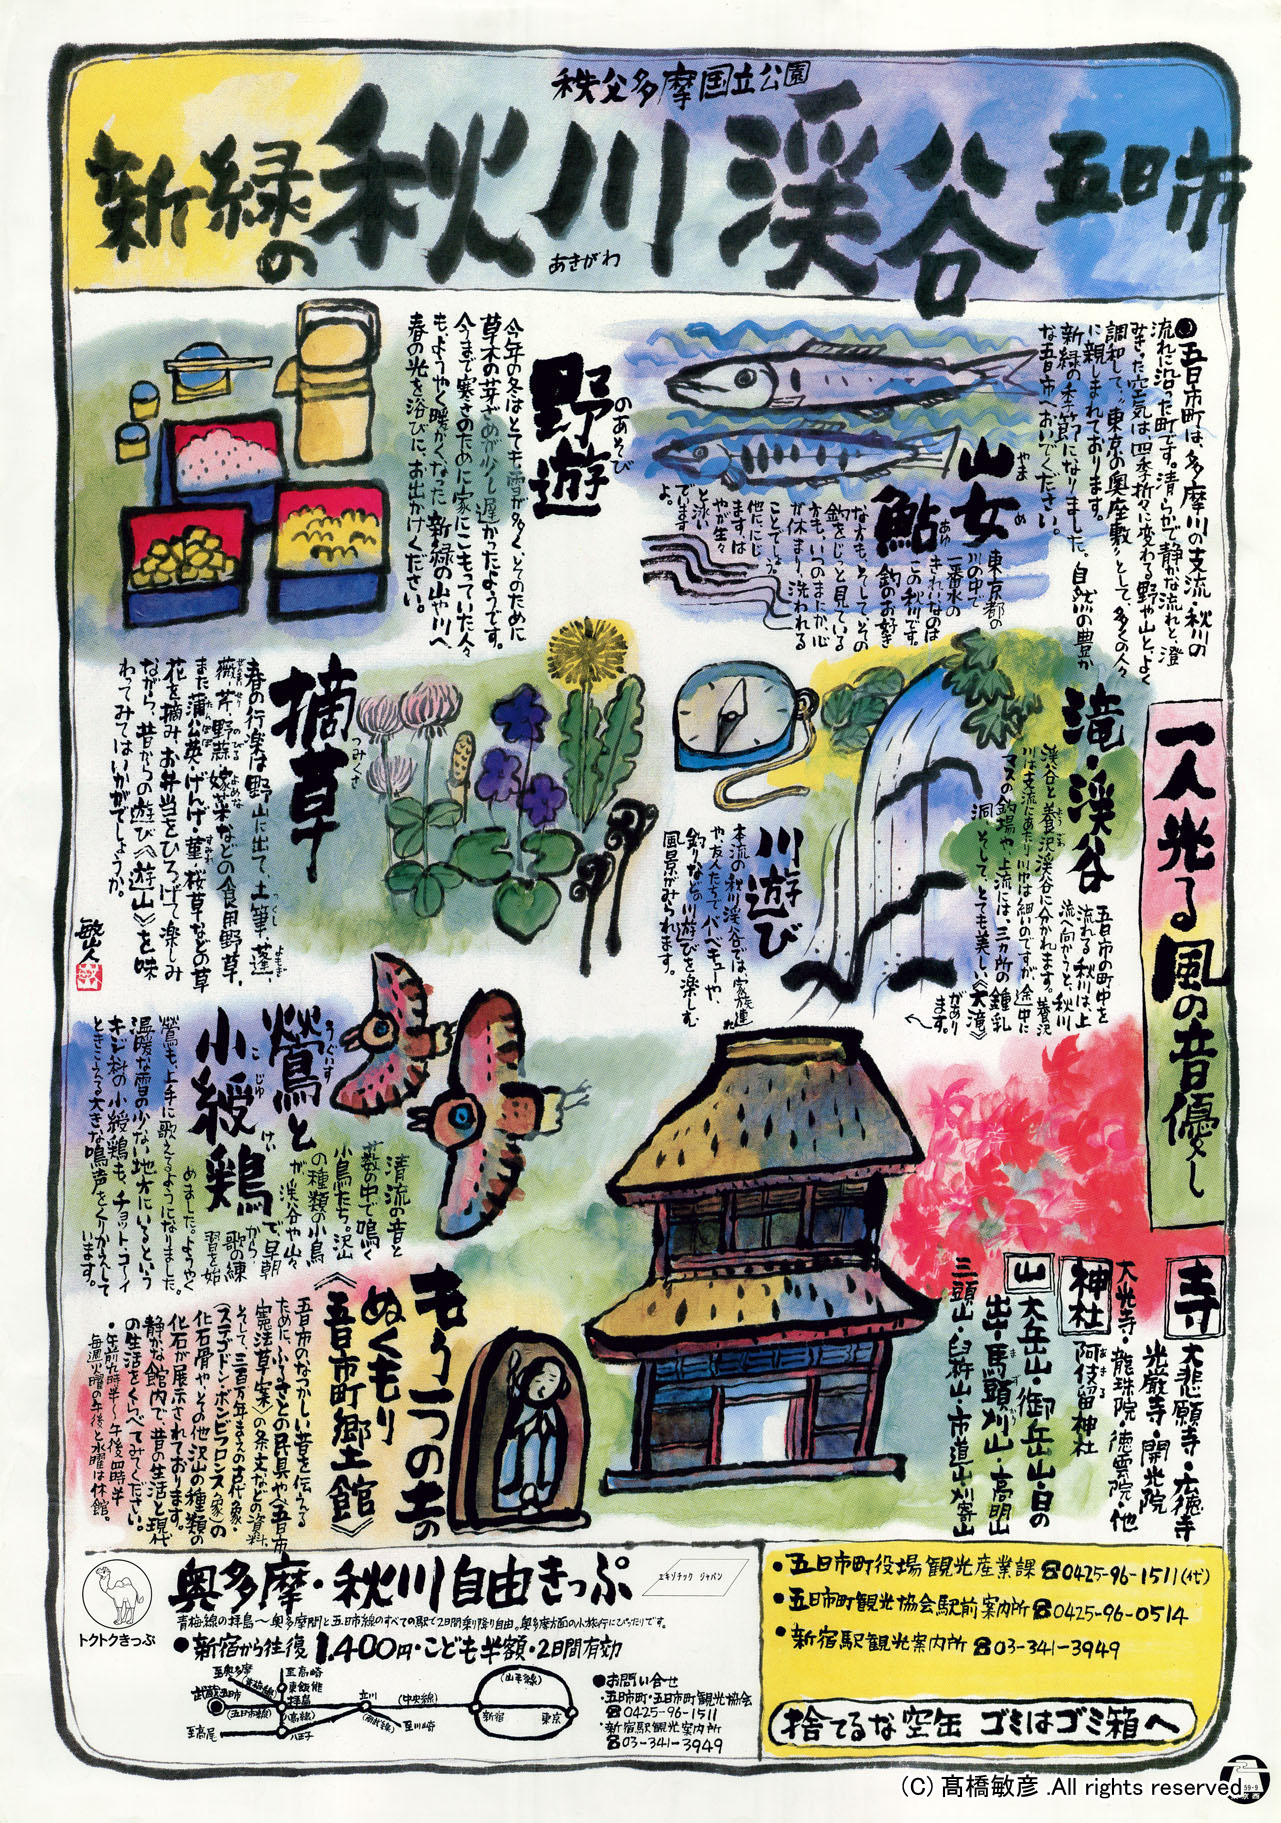 秩父多摩国立公園
新緑の秋川渓谷 五日市
あきがわ
●五日市町は、多摩川の支流・秋川の
流れに沿った町です。清らかで静かな流れと、澄
みきった空気は四季折々に変わる野や山と、よく
調和して、"東京の奥座敷"として、多くの人々
に親しまれております。
新緑の季節になりました。自然の豊か
な五日市へおいでください。
山女
やまめ
鮎
あゆ
東京都の
川の中で
一番水の
きれいなのは
この秋川です。
釣のお好き
な方も、そしてその
釣をじっと見ている
方も、いつのまにか、心
が休まり、洗われる
ことでしょう。
他ににじ
ます、は
やが生々
と泳い
でいます
よ。
野遊
のあそび
今年の冬はとても雪が多く、そのために
草木の芽ざめが少し遅かったようです。
今まで寒さのために家にこもっていた人々
も、ようやく暖かくなった新緑の山や川へ
春の光を浴びに、お出かけください。
一人光る風の音優し
滝・渓谷
五日市の町中を
流れる秋川は、上
流へ向かうと、秋川
渓谷と養沢渓谷に分かれます。養沢
川は支流にあたり川巾は細いのですが、途中に
マスの釣場や上流には、三カ所の鍾乳
洞、そして、とても美しい《大滝》
があり
ます。
川遊び
本流の秋川渓谷では、家族連れ
や友人たちで、バーベキューや、
釣りなどの川遊びを楽しむ
風景がみられます。
摘草
つみくさ
春の行楽は野山に出て、土筆・蓬・
薇・芹・野蒜・嫁菜などの食用野草、
また蒲公英・げんげ・菫・桜草などの草
花を摘み、お弁当をひろげて楽しみ
ながら、昔からの遊び《遊山》を味
わってみてはいかがでしょうか。
敏彦
鶯と
うぐいす
小綬鶏
こじゅけい
清流の音と
藪の中で鳴く
小鳥たち。沢山
の種類の小鳥
が渓谷や山々
で早朝
から
歌の練
習を始
めました。ようやく
鶯も、上手に歌えるようになりました。
温暖な雪の少ない地方にいるという
キジ科の小綬鶏も、チョット・コーイ
ときこえる大きな鳴声をくりかえして
います。
寺
大悲願寺・広徳寺
光厳寺・開光院
大光寺・龍珠院・徳雲院・他
神社
阿伎留神社
あきる
山
大岳山・御岳山・日の
出・馬頭刈山・高明山
三頭山・臼杵山・市道山・刈寄山
もう一つの土の
ぬくもり
《五日市町郷土館》
五日市のなつかしい昔を伝える
ために、ふるさとの民具や《五日市
憲法草案》の条文などの資料、
そして、三百万年まえの古代象・
(ステゴドン・ボンビフロンス象)の
化石骨や、その他沢山の種類の
化石が展示されております。
静かな館内で、昔の生活と現代
の生活をくらべてみてください。
・午前九時半〜午後四時半
毎週火曜の午後と水曜は休館。
トクトクきっぷ
奥多摩・秋川自由きっぷ
エキゾチック ジャパン
青梅線の拝島〜奥多摩間と五日市線のすべての駅で2日間乗り降り自由。奥多摩方面の小旅行にぴったりです。
●新宿から往復1,400円・こども半額・2日間有効
至奥多摩
(青梅線)
武蔵五日市
(五日市線)
至高尾
至高崎
東飯能
拝島
(八高線)
八王子
立川
(南武線)
至川崎
(中央線)
(山手線)
新宿
東京
●お問い合せ
・五日市町・五日市町観光協会
☎0425-96-1511
・新宿駅観光案内所
☎03-341-3949
・五日市町役場観光産業課☎0425-96-1511(代)
・五日市町観光協会駅前案内所☎0425-96-0514
・新宿駅観光案内所☎03-341-3949
捨てるな空缶 ゴミはゴミ箱へ
59-9
東京西
(C) 髙橋敏彦 .All rights reserved